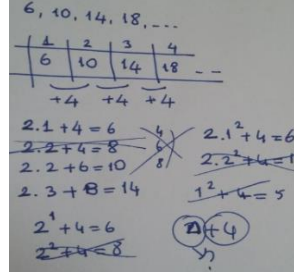 6, 10, 14, 18, ...
1 2 3 4
6 10 14 18 --
+4 +4 +4
2.1+4=6
2.2+4=8
2.2+6=10
2.3+8=14
4
6
8
2.1²+4=6
2.2²+4=1
1²+4=5
2¹+4=6
2²+4=8
+4